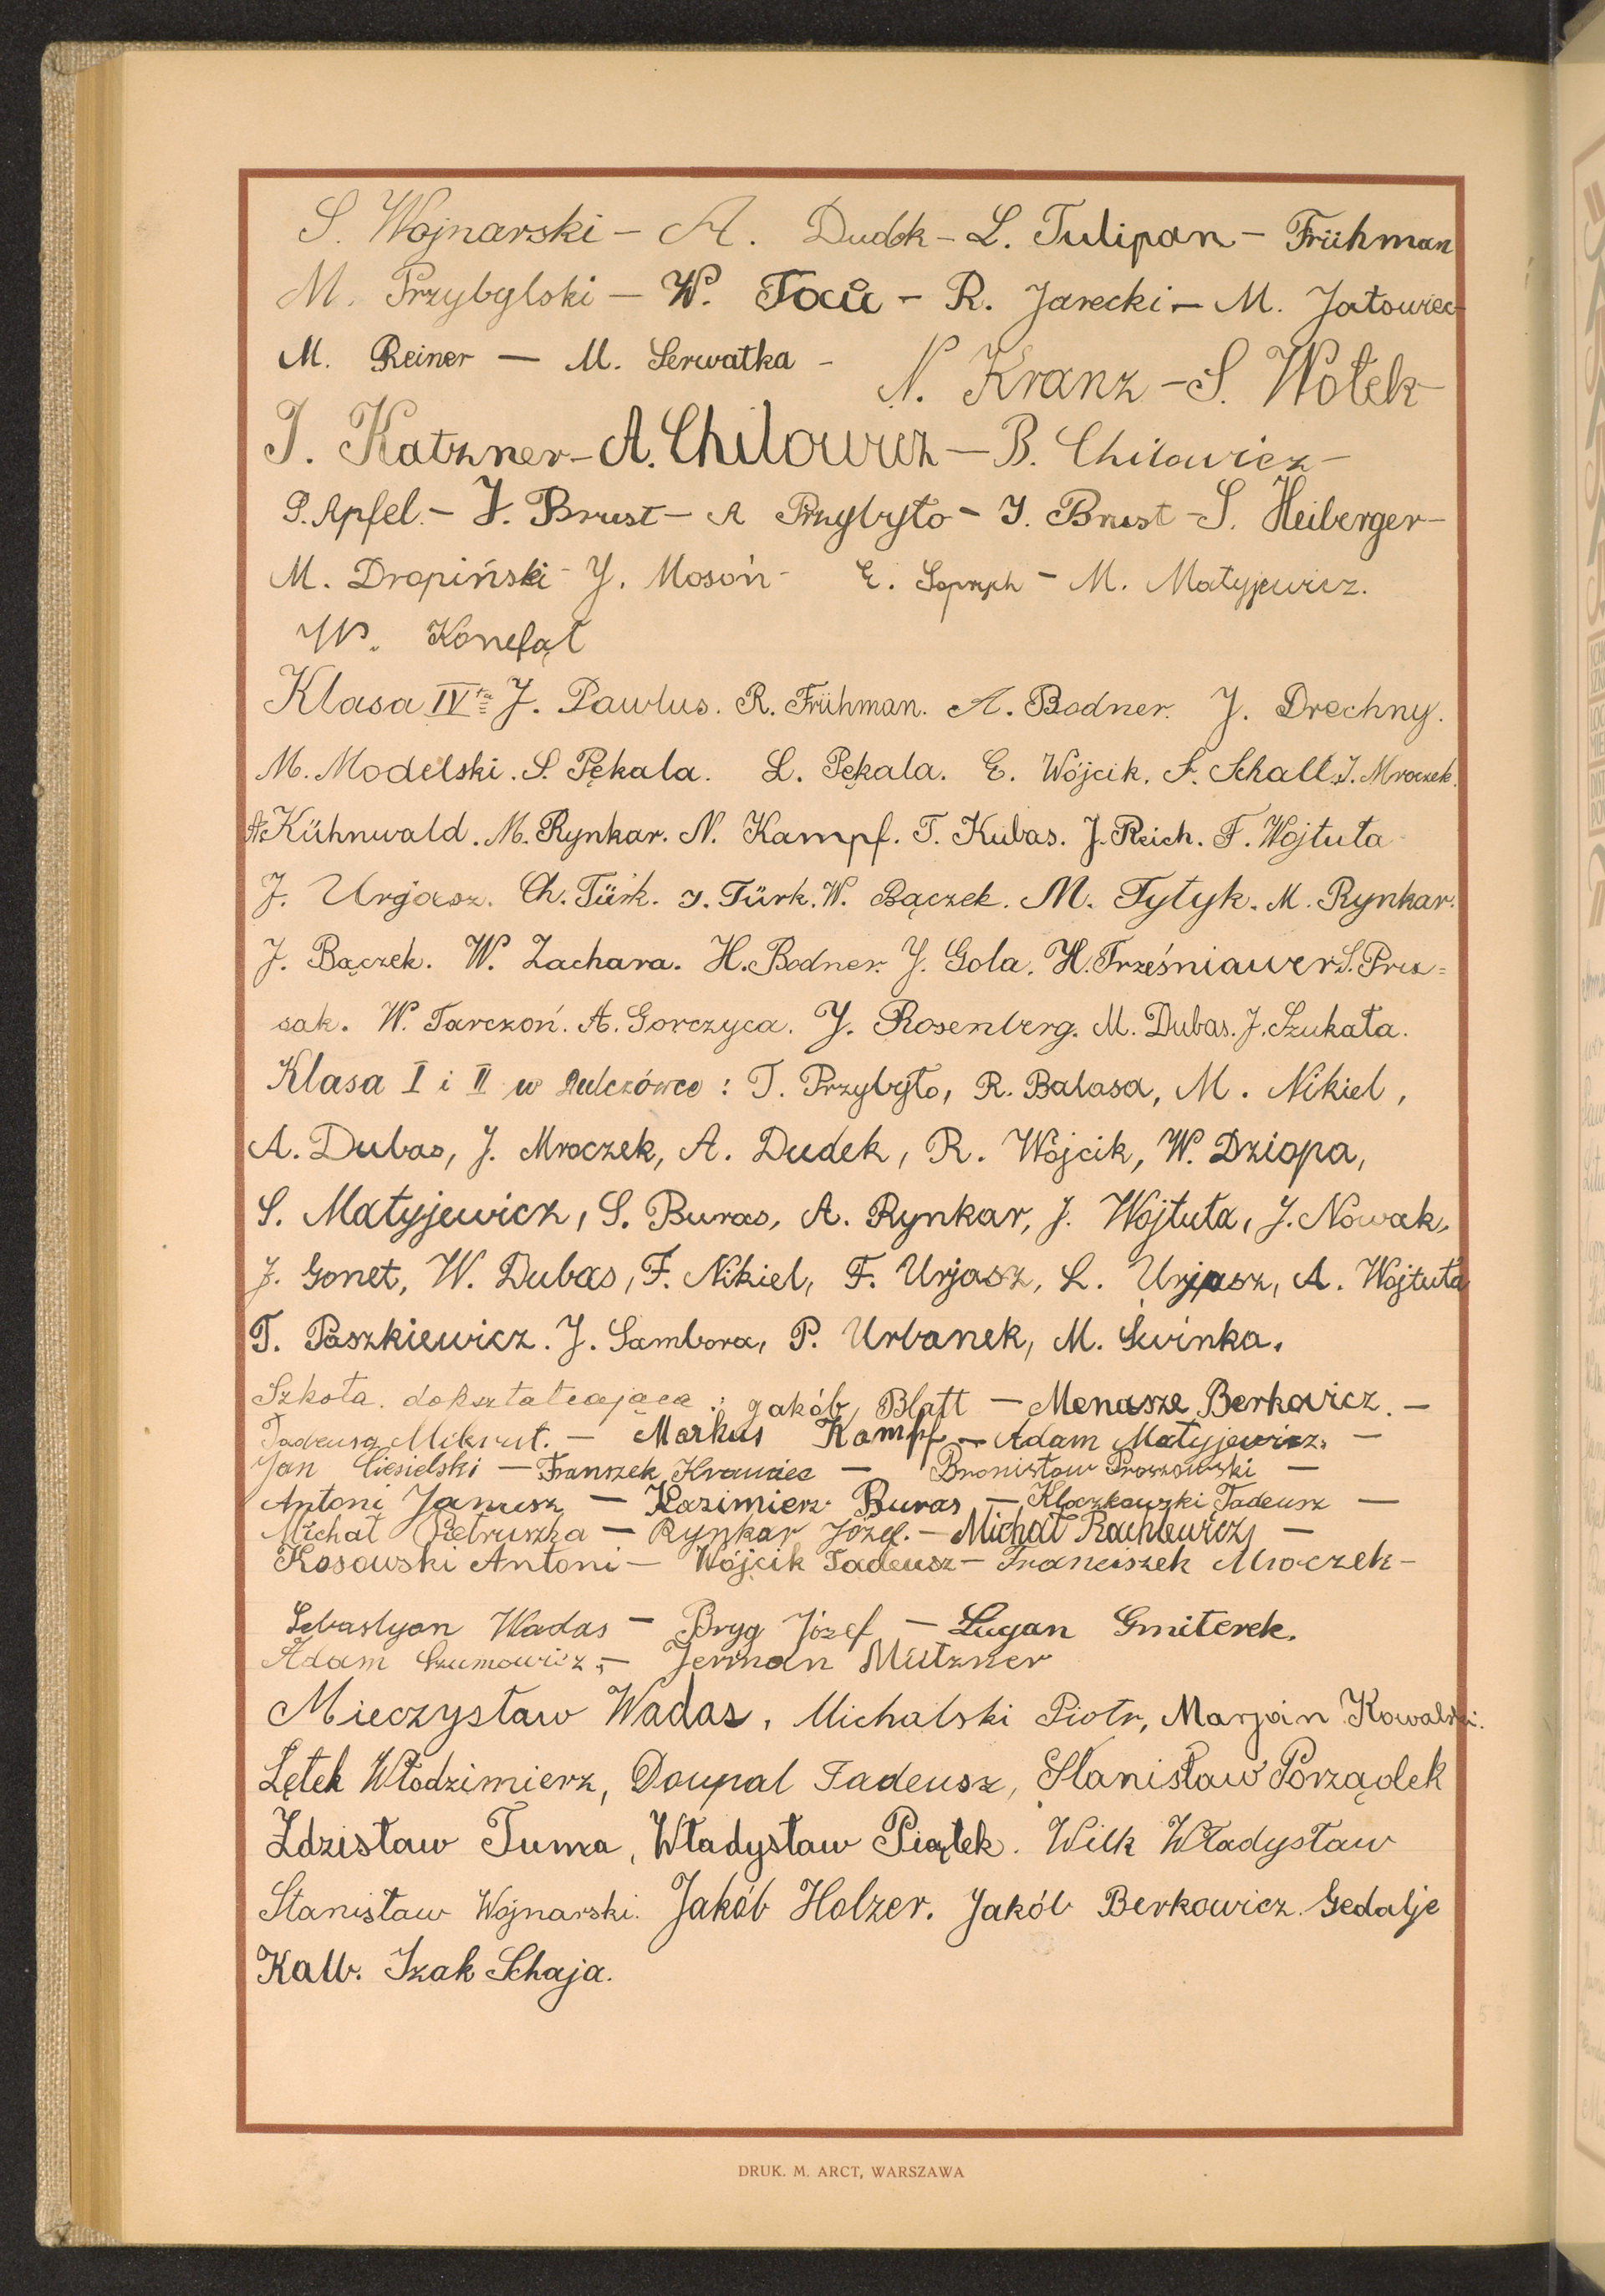 S. Wojnarski – A. Dudek – L. Tulipan – Frühman
M. Przybylski – W. – R. Jarecki – M. Jatowiec
M. Reiner – M. Serwatka – N. Kranz – S. Wołek –
J. Katzner – A. Chilowicz – B. Chilowicz –
P. Apfel. – J. Brust – A Przybyło – J. Brust – S. Heiberger –
M. Dropiński – J. Mosoń – E. – M. Matyjewicz.
W. Konefał
Klasa IVta J. Pawlus. R. Frühman. A. Bodner. J. Drechny.
M. Modelski. S. Pękala. L. Pękala. E. Wójcik. S. Schall. J. Mroczek.
Kühnwald. M. Rynkar. N. Kampf. T. Kubas. J. Reich. F. Wojtuła
J. Urjasz. Ch. Türk. J. Türk. W. Bączek. M. Tytyk. M. Rynkar.
J. Bączek. W. Zachara. H. Bodner. J. Gola. H. Trześniawer S. Pru=
sak. W. Tarczoń. A. Gorczyca. J. Rosenberg. M. Dubas. J. Szukała.
Klasa I i II w Dulczówce : T. Przybyło, R. Balasa, M. Nikiel,
A. Dubas, J. Mroczek, A. Dudek, R. Wójcik, W. Dziopa,
S. Matyjewicz, S. Buras, A. Rynkar, J. Wojtuła, J. Nowak,
J. Gonet, W. Dubas, F. Nikiel, F. Urjasz, L. Urjasz, A. Wojtuła
T. Paszkiewicz. J. Sambora, P. Urbanek, M. Świnka.
Szkoła dokształcająca : Jakób Blatt – Menasze Berkowicz. –
Tadeusz Mikrut. – Markus Kampf – Adam Matyjewicz. –
Jan Ciesielski – Franszek Krawiec – Bronisław Proszowski –
Antoni Janusz – Kazimierz Buras – Kłoczkowski Tadeusz –
Michał Pietruszka – Rynkar Józef. – Michał Rachlewicz –
Kosowski Antoni – Wójcik Tadeusz – Franciszek Mroczek –
Sebastyan Wadas – Bryg Józef – Lugan Gmiterek.
Adam Szumowicz, – Jerman Mützner
Mieczysław Wadas, Michalski Piotr, Marjan Kowalski.
Łętek Włodzimierz, Doupal Tadeusz, Stanisław Porządek
Zdzisław Tuma, Władysław Piątek. Wilk Władysław
Stanisław Wojnarski. Jakób Holzer. Jakób Berkowicz. Gedalje
Kalb. Izak Schaja.
DRUK. M. ARCT, WARSZAWA